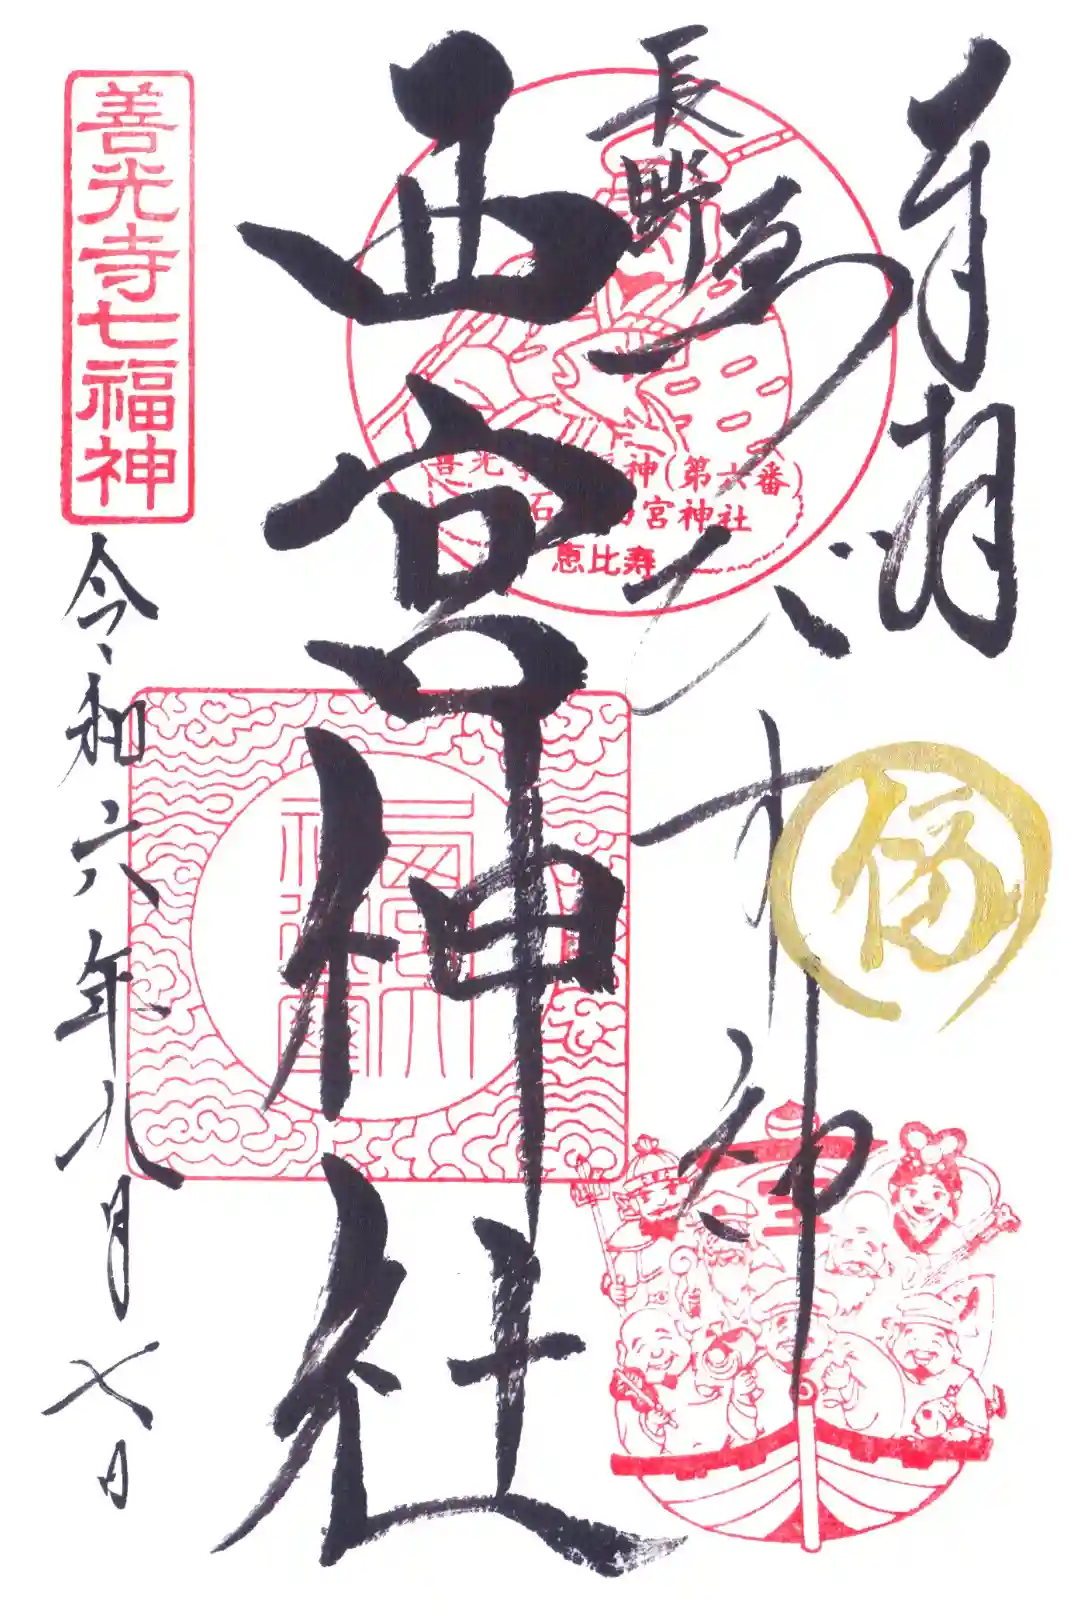 奉拝
福
長野
ゑびす神
西宮神社
善光寺七福神
令和六年九月七日
善光寺七福神(第六番)
西宮神社
恵比寿
宝